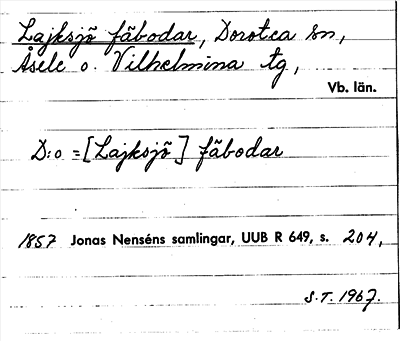 Lajksjö fäbodar, Dorotea sn,
Åsele o. Vilhelmina tg,
Vb. län.
D:o = [Lajksjö] fäbodar
1857 Jonas Nenséns samlingar, UUB R 649, s. 204,
S.T. 1967.